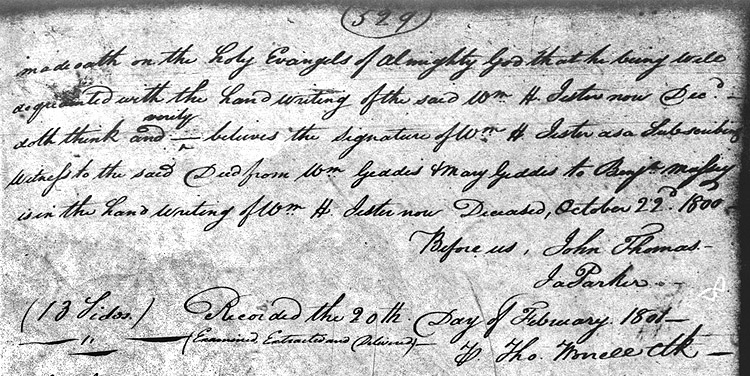 (529)
made oath on the holy Evangels of Almighty God that he being well
acquainted with the hand writing of the said Wm H. Jester now Decd. —
doth think and verily believes the signature of Wm H. Jester as a Subscribing
Witness to the said Deed from Wm Geddis & Mary Geddes to Benjn. Massey
is in the hand writing of Wm H. Jester now Deceased, October 22d. 1800 —
Before us, John Thomas —
Ja Parker —
(13 Sides.) Recorded the 20th. Day of February. 1801 —
(Examined, Extracted and Delivered) — Tho. Worrell Clk —